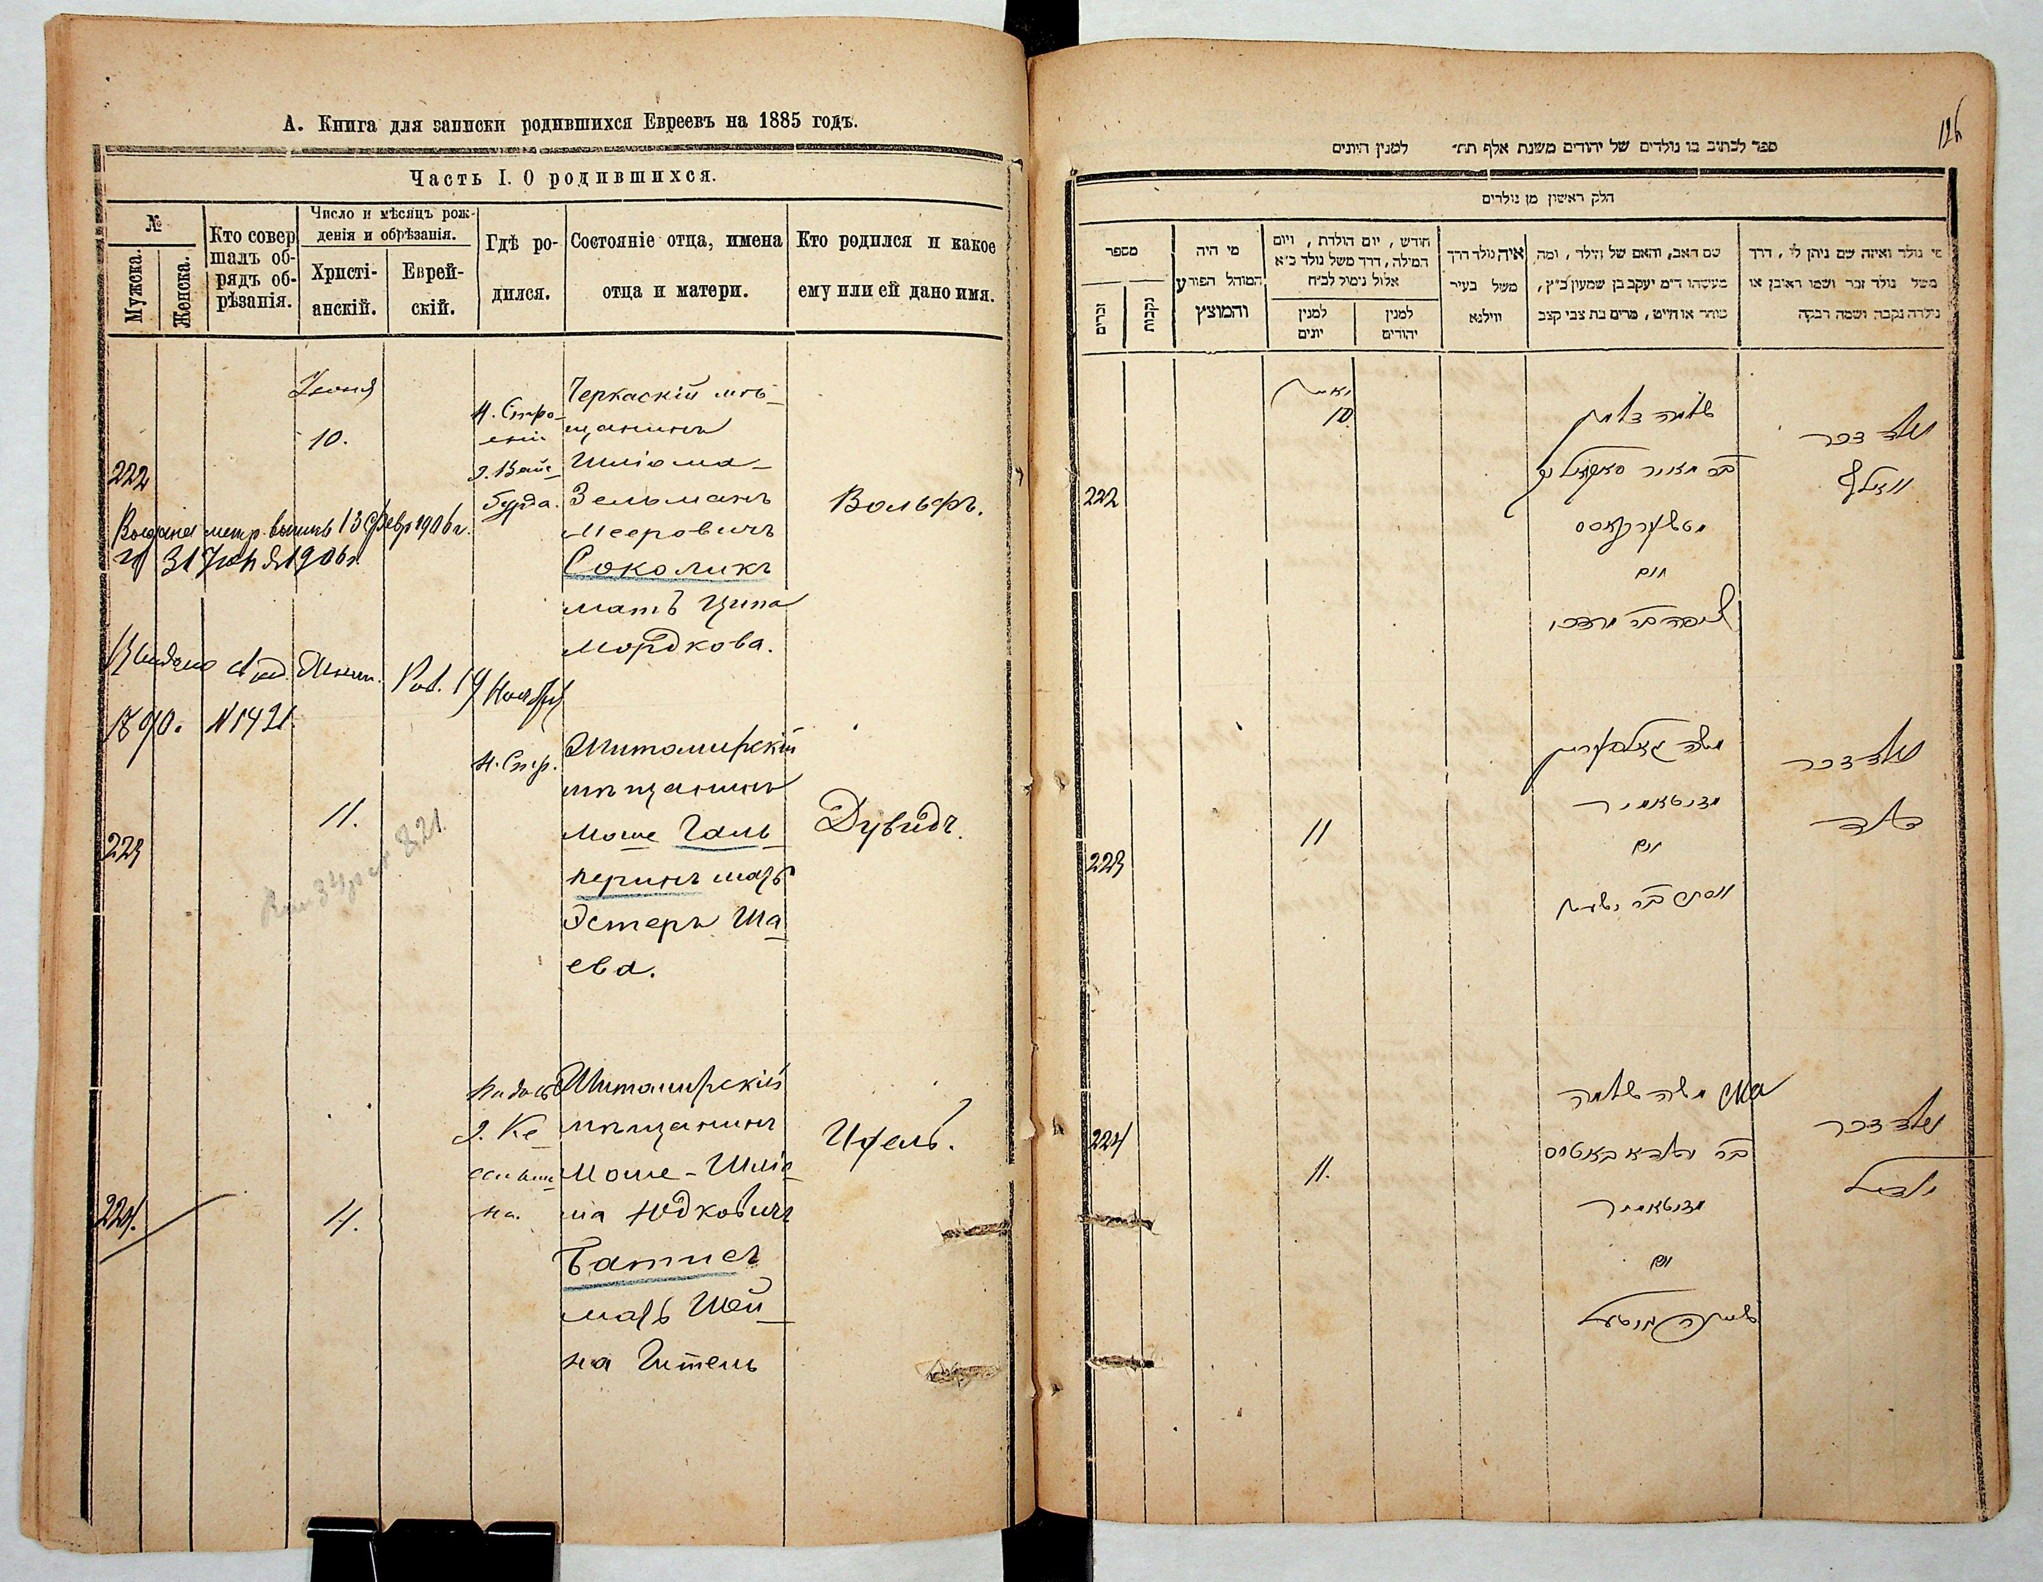 А. Книга для записки родившихся Евреевъ на 1885 годъ.
Часть I. О родившихся.
№
Мужска.
Женска.
Кто совер
шалъ об-
рядъ об-
рѣзанія.
Число и мѣсяцъ рож-
денія и обрѣзанія.
Христі-
анскій.
Еврей-
скій.
Гдѣ ро-
дился.
Состояніе отца, имена
отца и матери.
Кто родился и какое
ему или ей дано имя.
222
Іюня
10.
Н. Стро-
еніи
д. Вайс
бурда.
Черкаскій мѣ-
щанинъ
Шліома-
Зельманъ
Мееровичъ
Соколикъ
мать Ципа
Мордкова.
Вольфъ.
метр. выпись 13 февр 1906 г.
и 31 1906 г.
Выдано
1890. N 1421.
223
11.
821.
Н. Стр.
Житомирскій
мѣщанинъ
Моше Галь-
перинъ мать
Эстеръ Ша-
ева.
Дувидъ.
224.
4.
д. Ке
на.
Житомирскій
мѣщанинъ
Моше-Шліо
ма Юдковичъ
Батисъ
мать Шей-
на Гитель
Ицель.
126
ספר לכתוב בו נולדים של יהודים משנת אלף תת״ למנין היונים
חלק ראשון מן נולדים
מספר
זכרים
נקבות
מי היה
המוהל הפורע
והמוצץ
חודש, יום הולדת, ויום
המילה, דרך משל נולד כ״א
אלול נימול לכ״ח
למנין
יונים
למנין
יהודים
איה נולד דרך
משל בעיר
ווילנא
שם האב, והאם של הילד, ומה
מעשהו ד״מ יעקב בן שמעון כ״ץ,
סוחר או חייט, מרים בת צבי קצב
מי נולד ואיזה שם ניתן לו, דרך
משל נולד זכר ושמו ראובן או
נולדה נקבה ושמה רבקה
222
10
שלמה זלמן
בר מאיר סאקאליק
ואם
ציפה בר מרדכי
נולד זכר
וואלף
223
11
משה גאלפערין
זיטאמיר
ואם
אסתר בר ישעיה
נולד זכר
דוד
224
11.
משה שלמה
בר יודא באטיס
זיטאמיר
ואם
נולד זכר